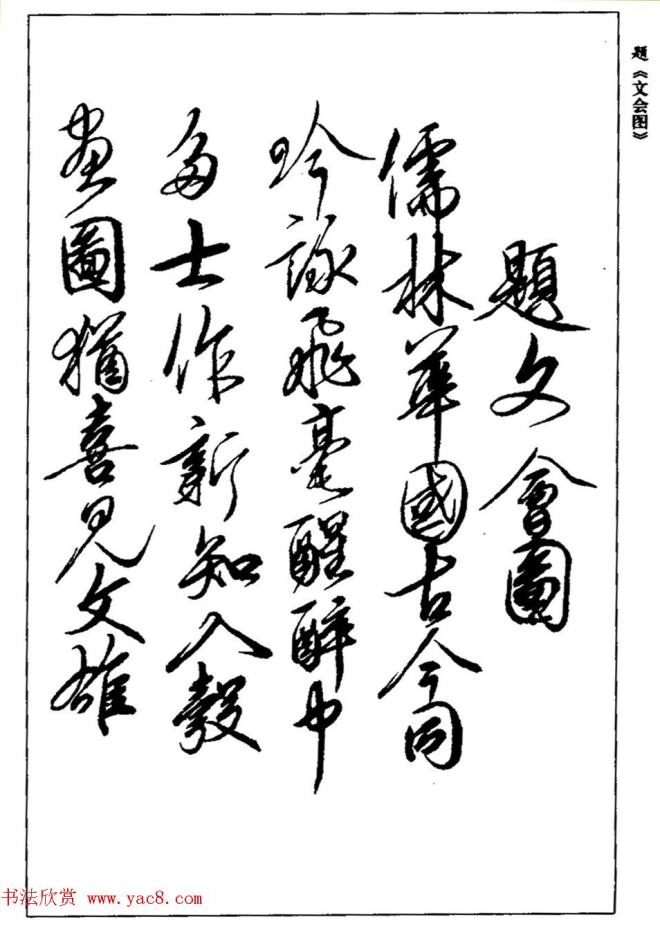 题《文会图》
題文會圖
儒林華國古今同
吟詠飛毫醒醉中
多士作新知入彀
畫圖猶喜見文雄
书法欣赏 www.yac8.com